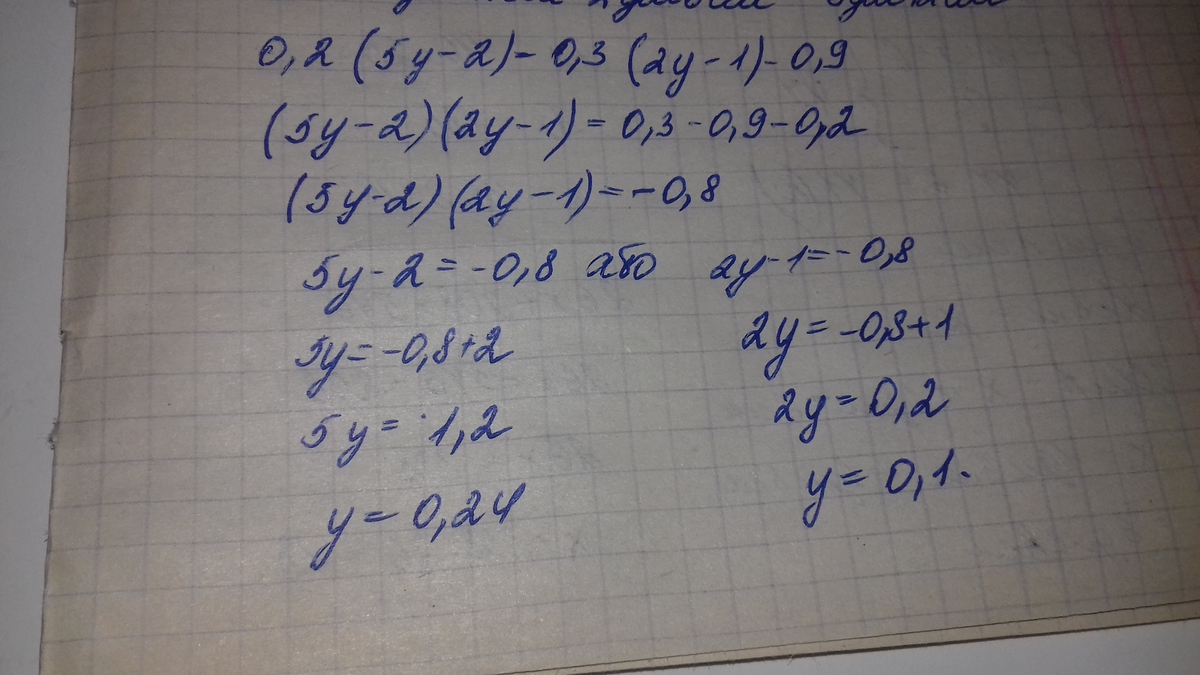 0,2 (5y-2)- 0,3 (2y-1)-0,9
(5y-2)(2y-1)=0,3-0,9-0,2
(5y-2)(2y-1)=-0,8
5y-2=-0,8 або 2y-1=-0,8
5y=-0,8+2 2y=-0,8+1
5y= 1,2 2y=0,2
y=0,24 y=0,1.